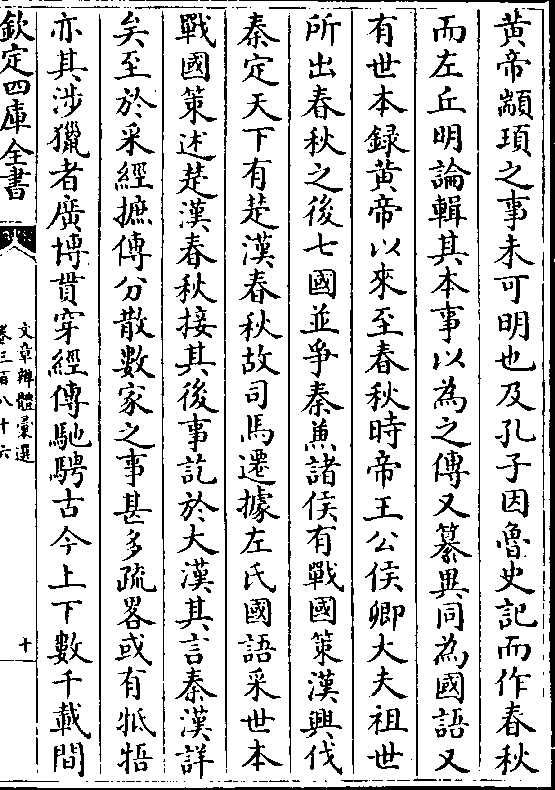 黄帝顓頊之事未可明也及孔子因魯史記而作春秋
而左丘明論輯其本事以為之傳又纂異同為國語又
有世本録黄帝以來至春秋時帝王公侯卿大夫祖世
所出春秋之後七國並爭秦兼諸侯有戰國策漢興伐
秦定天下有楚漢春秋故司馬遷據左氏國語采世本
戰國策述楚漢春秋接其後事訖於大漢其言秦漢詳
矣至於采經摭傳分散數家之事甚多疏畧或有牴牾
亦其涉獵者廣博貫穿經傳馳騁古今上下數千載間
欽定四庫全書
文章辨體彚選
卷三百八十六
十